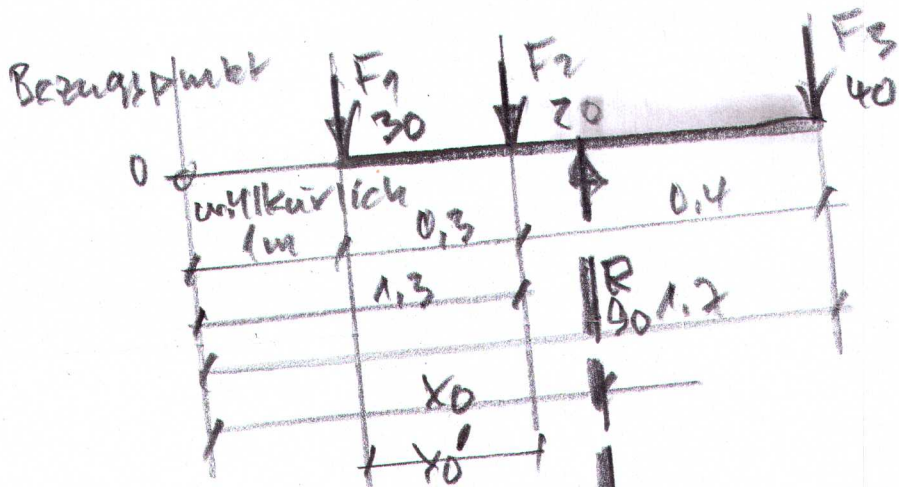 Bezugspunkt
F1
30
F2
20
F3
40
0
willkürlich
1m
0,3
0,4
1,3
R
90
1,7
X0
X0'